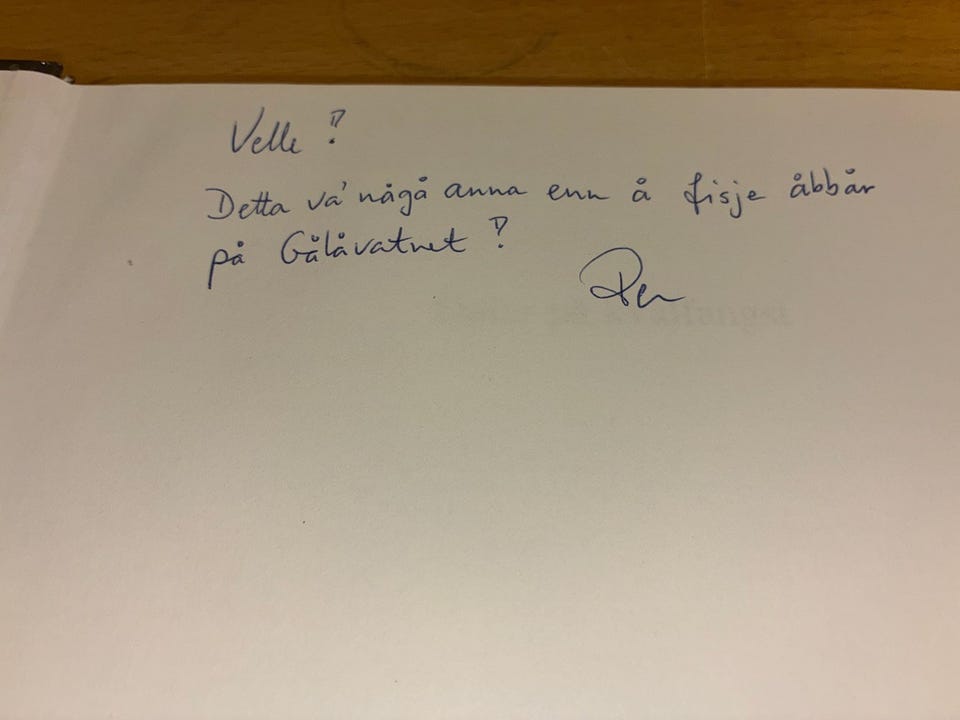 Velle!
Detta va' någå anna enn å fisje åbbår
på Gålåvatnet!
Per